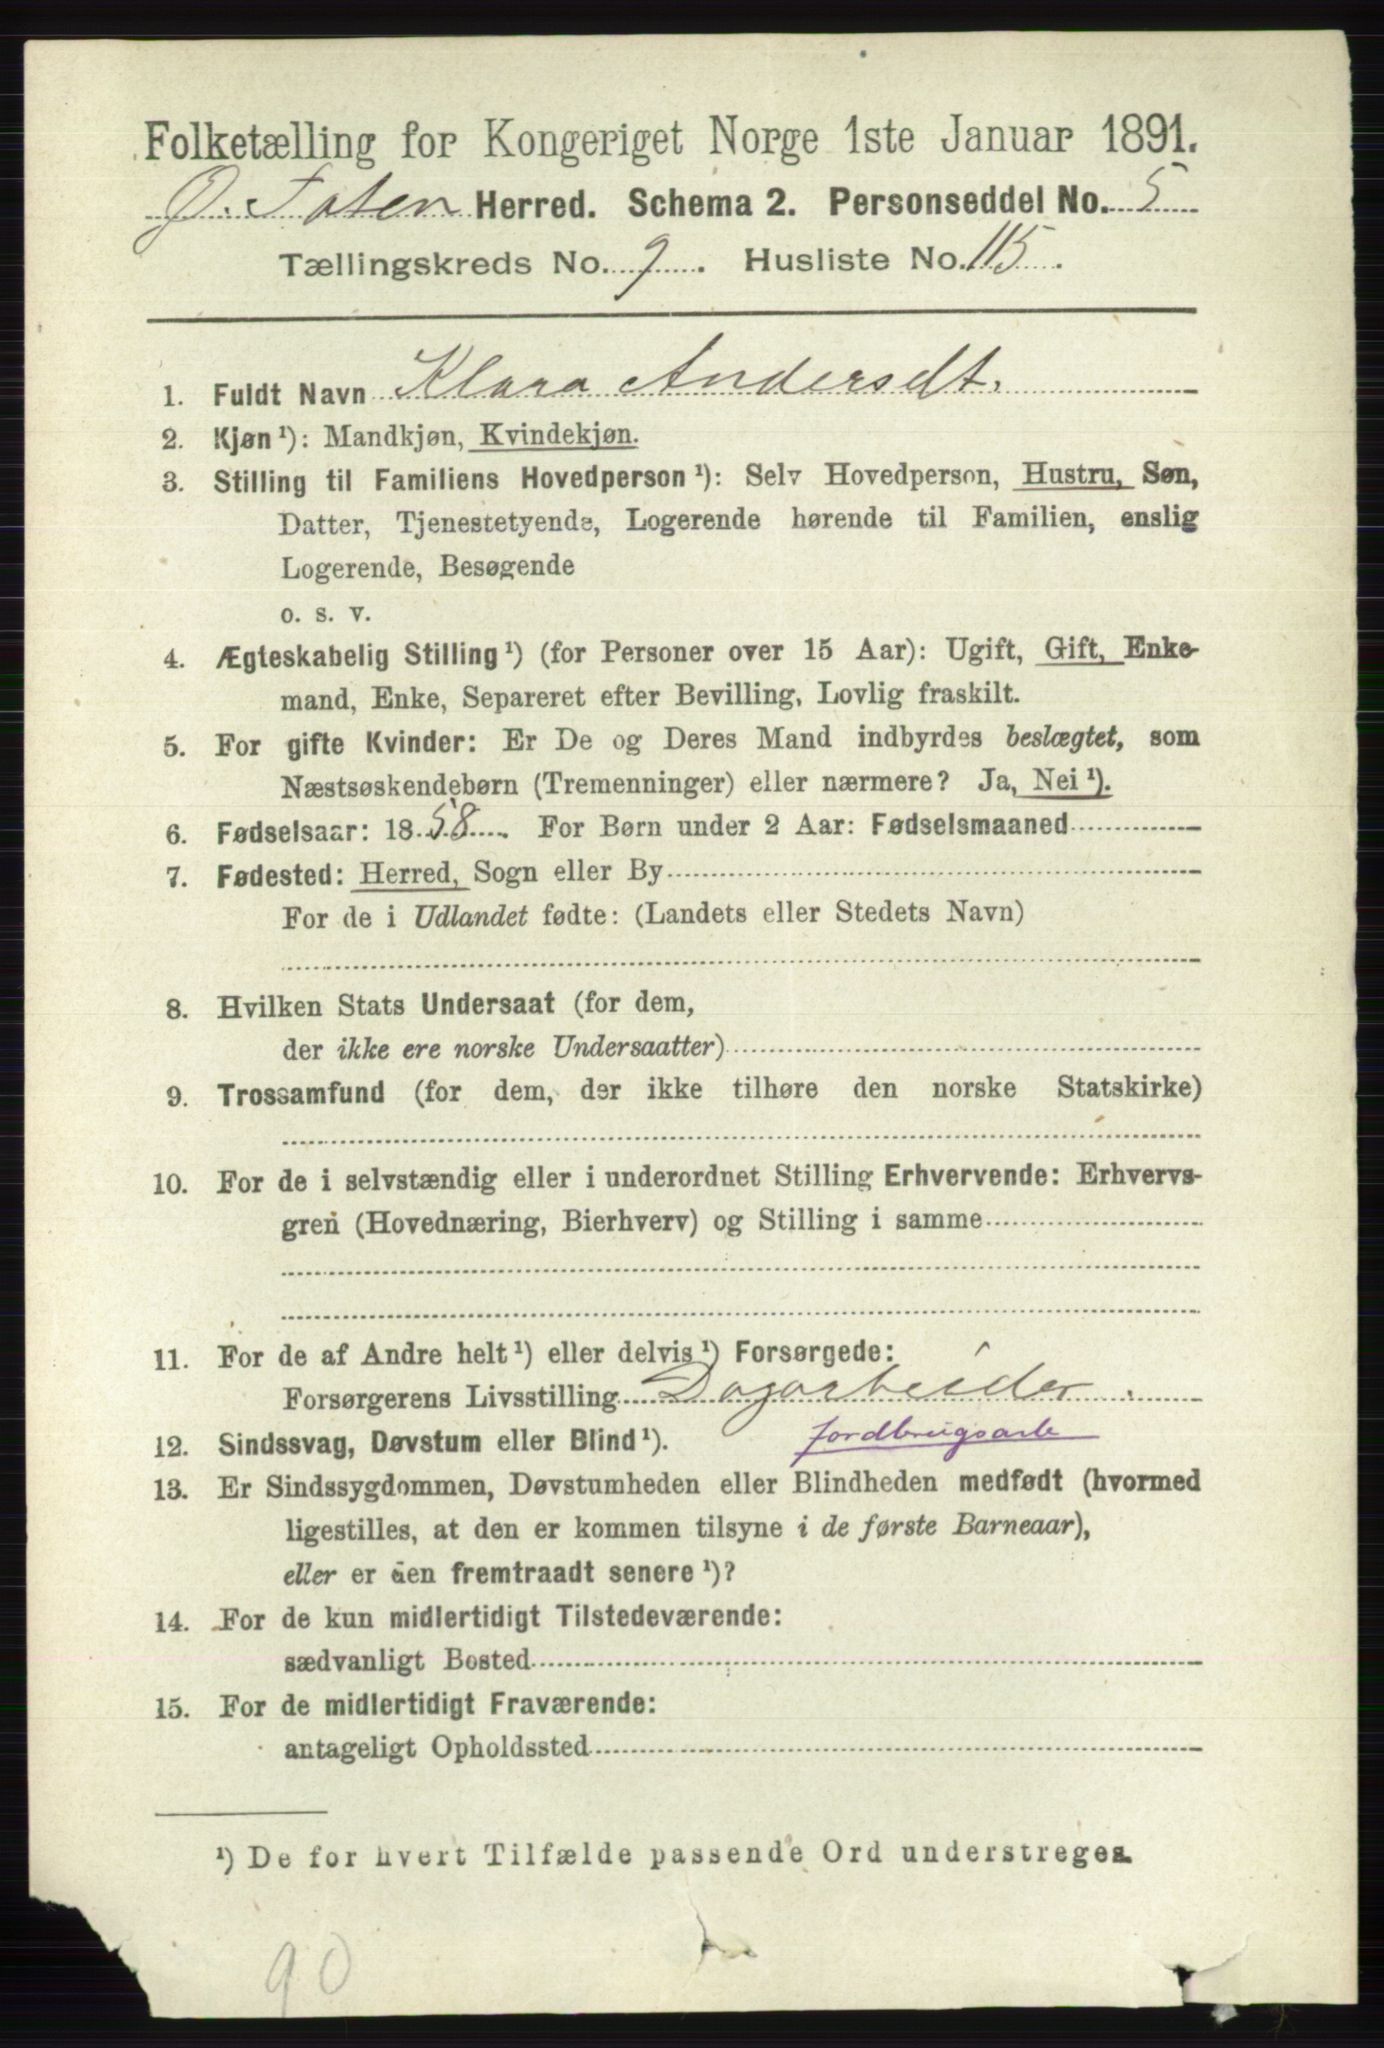 Folketælling for Kongeriget Norge 1ste Januar 1891.
Ø. Toten Herred. Schema 2. Personseddel No. 5
Tællingskreds No. 9. Husliste No. 115.
1. Fuldt Navn Klara Andersdt.
2. Kjøn¹): Mandkjøn, Kvindekjøn.
3. Stilling til Familiens Hovedperson¹): Selv Hovedperson, Hustru, Søn,
Datter, Tjenestetyende, Logerende hørende til Familien, enslig
Logerende, Besøgende
o. s. v.
4. Ægteskabelig Stilling¹) (for Personer over 15 Aar): Ugift, Gift, Enke-
mand, Enke, Separeret efter Bevilling, Lovlig fraskilt.
5. For gifte Kvinder: Er De og Deres Mand indbyrdes beslægtet, som
Næstsøskendebørn (Tremenninger) eller nærmere? Ja, Nei¹).
6. Fødselsaar: 1858. For Børn under 2 Aar: Fødselsmaaned
7. Fødested: Herred, Sogn eller By
For de i Udlandet fødte: (Landets eller Stedets Navn)
8. Hvilken Stats Undersaat (for dem,
der ikke ere norske Undersaatter)
9. Trossamfund (for dem, der ikke tilhøre den norske Statskirke)
10. For de i selvstændig eller i underordnet Stilling Erhvervende: Erhvervs-
gren (Hovednæring, Bierhverv) og Stilling i samme
11. For de af Andre helt¹) eller delvis¹) Forsørgede:
Forsørgerens Livsstilling Dagarbeider.
jordbrugsarb
12. Sindssvag, Døvstum eller Blind¹).
13. Er Sindssygdommen, Døvstumheden eller Blindheden medfødt (hvormed
ligestilles, at den er kommen tilsyne i de første Barneaar),
eller er den fremtraadt senere¹)?
14. For de kun midlertidigt Tilstedeværende:
sædvanligt Bosted
15. For de midlertidigt Fraværende:
antageligt Opholdssted
¹) De for hvert Tilfælde passende Ord understreges.
90